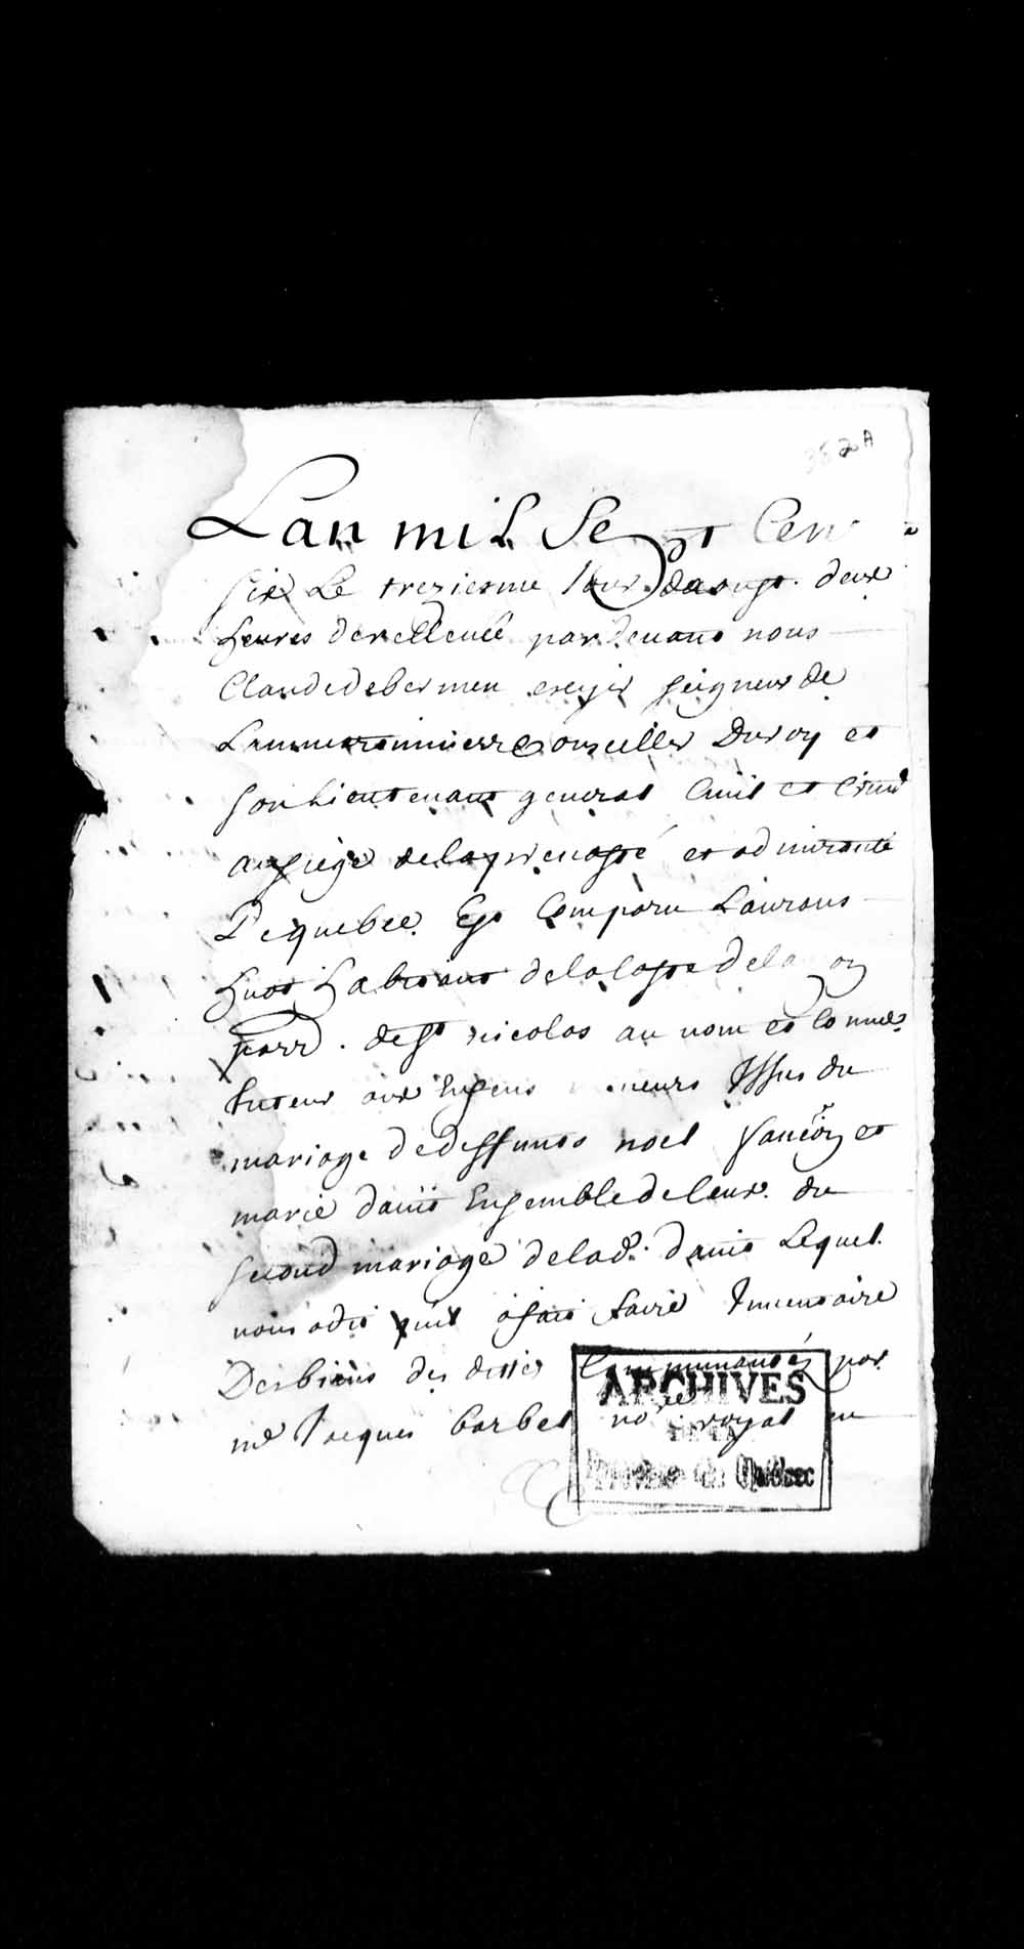 382A
Lan mil Sept Cen
six Le treziesme Jour daoust deux
heures de rellevée pardevant nous
Claude de bermen escuyer seigneur de
Lammartinnierre Conseiller Du roy et
son Lieutenant general Civil et Crim
au siege de la prevosté et admirauté
De quebec Est Comparu Laurans
huot habitant de la coste de
parr. de st nicolas au nom et comme
tuteur aux Enfens meurs Issus du
mariage de deffunts noel et
marie Ensemble de ceux du
second mariage de lad. Lequel
nous a dit quil a fait faire Inventaire
Des biens des dittes Communautés par
me Jacques barbel nore royal en
ARCHIVES
DE LA
Province de Québec